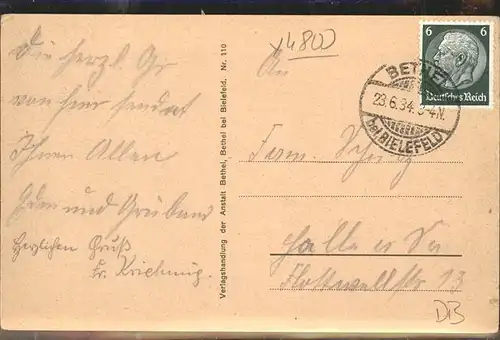 x4800
6 6
Deutsches Reich
BETHEL
23.6.34. 3-4N.
bei BIELEFELD
Die herzl. Gr
von hier sendet
Ihnen Allen
und
Herzlichen Gruß
Fr.
Verlagshandlung der Anstalt Bethel, Bethel bei Bielefeld. Nr. 110
An
Fam.
Halle
Flottwellstr 13
DB